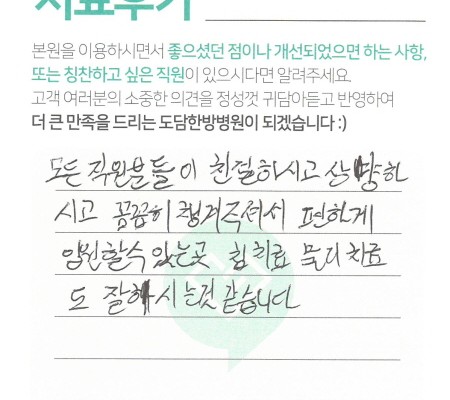 치료후기
본원을 이용하시면서 좋으셨던 점이나 개선되었으면 하는 사항,
또는 칭찬하고 싶은 직원이 있으시다면 알려주세요.
고객 여러분의 소중한 의견을 정성껏 귀담아듣고 반영하여
더 큰 만족을 드리는 도담한방병원이 되겠습니다 :)
모든 직원분들이 친절하시고 상냥하
시고 꼼꼼히 챙겨주셔서 편하게
입원할수 있는곳 침치료 물리치료
도 잘하시는것 같습니다